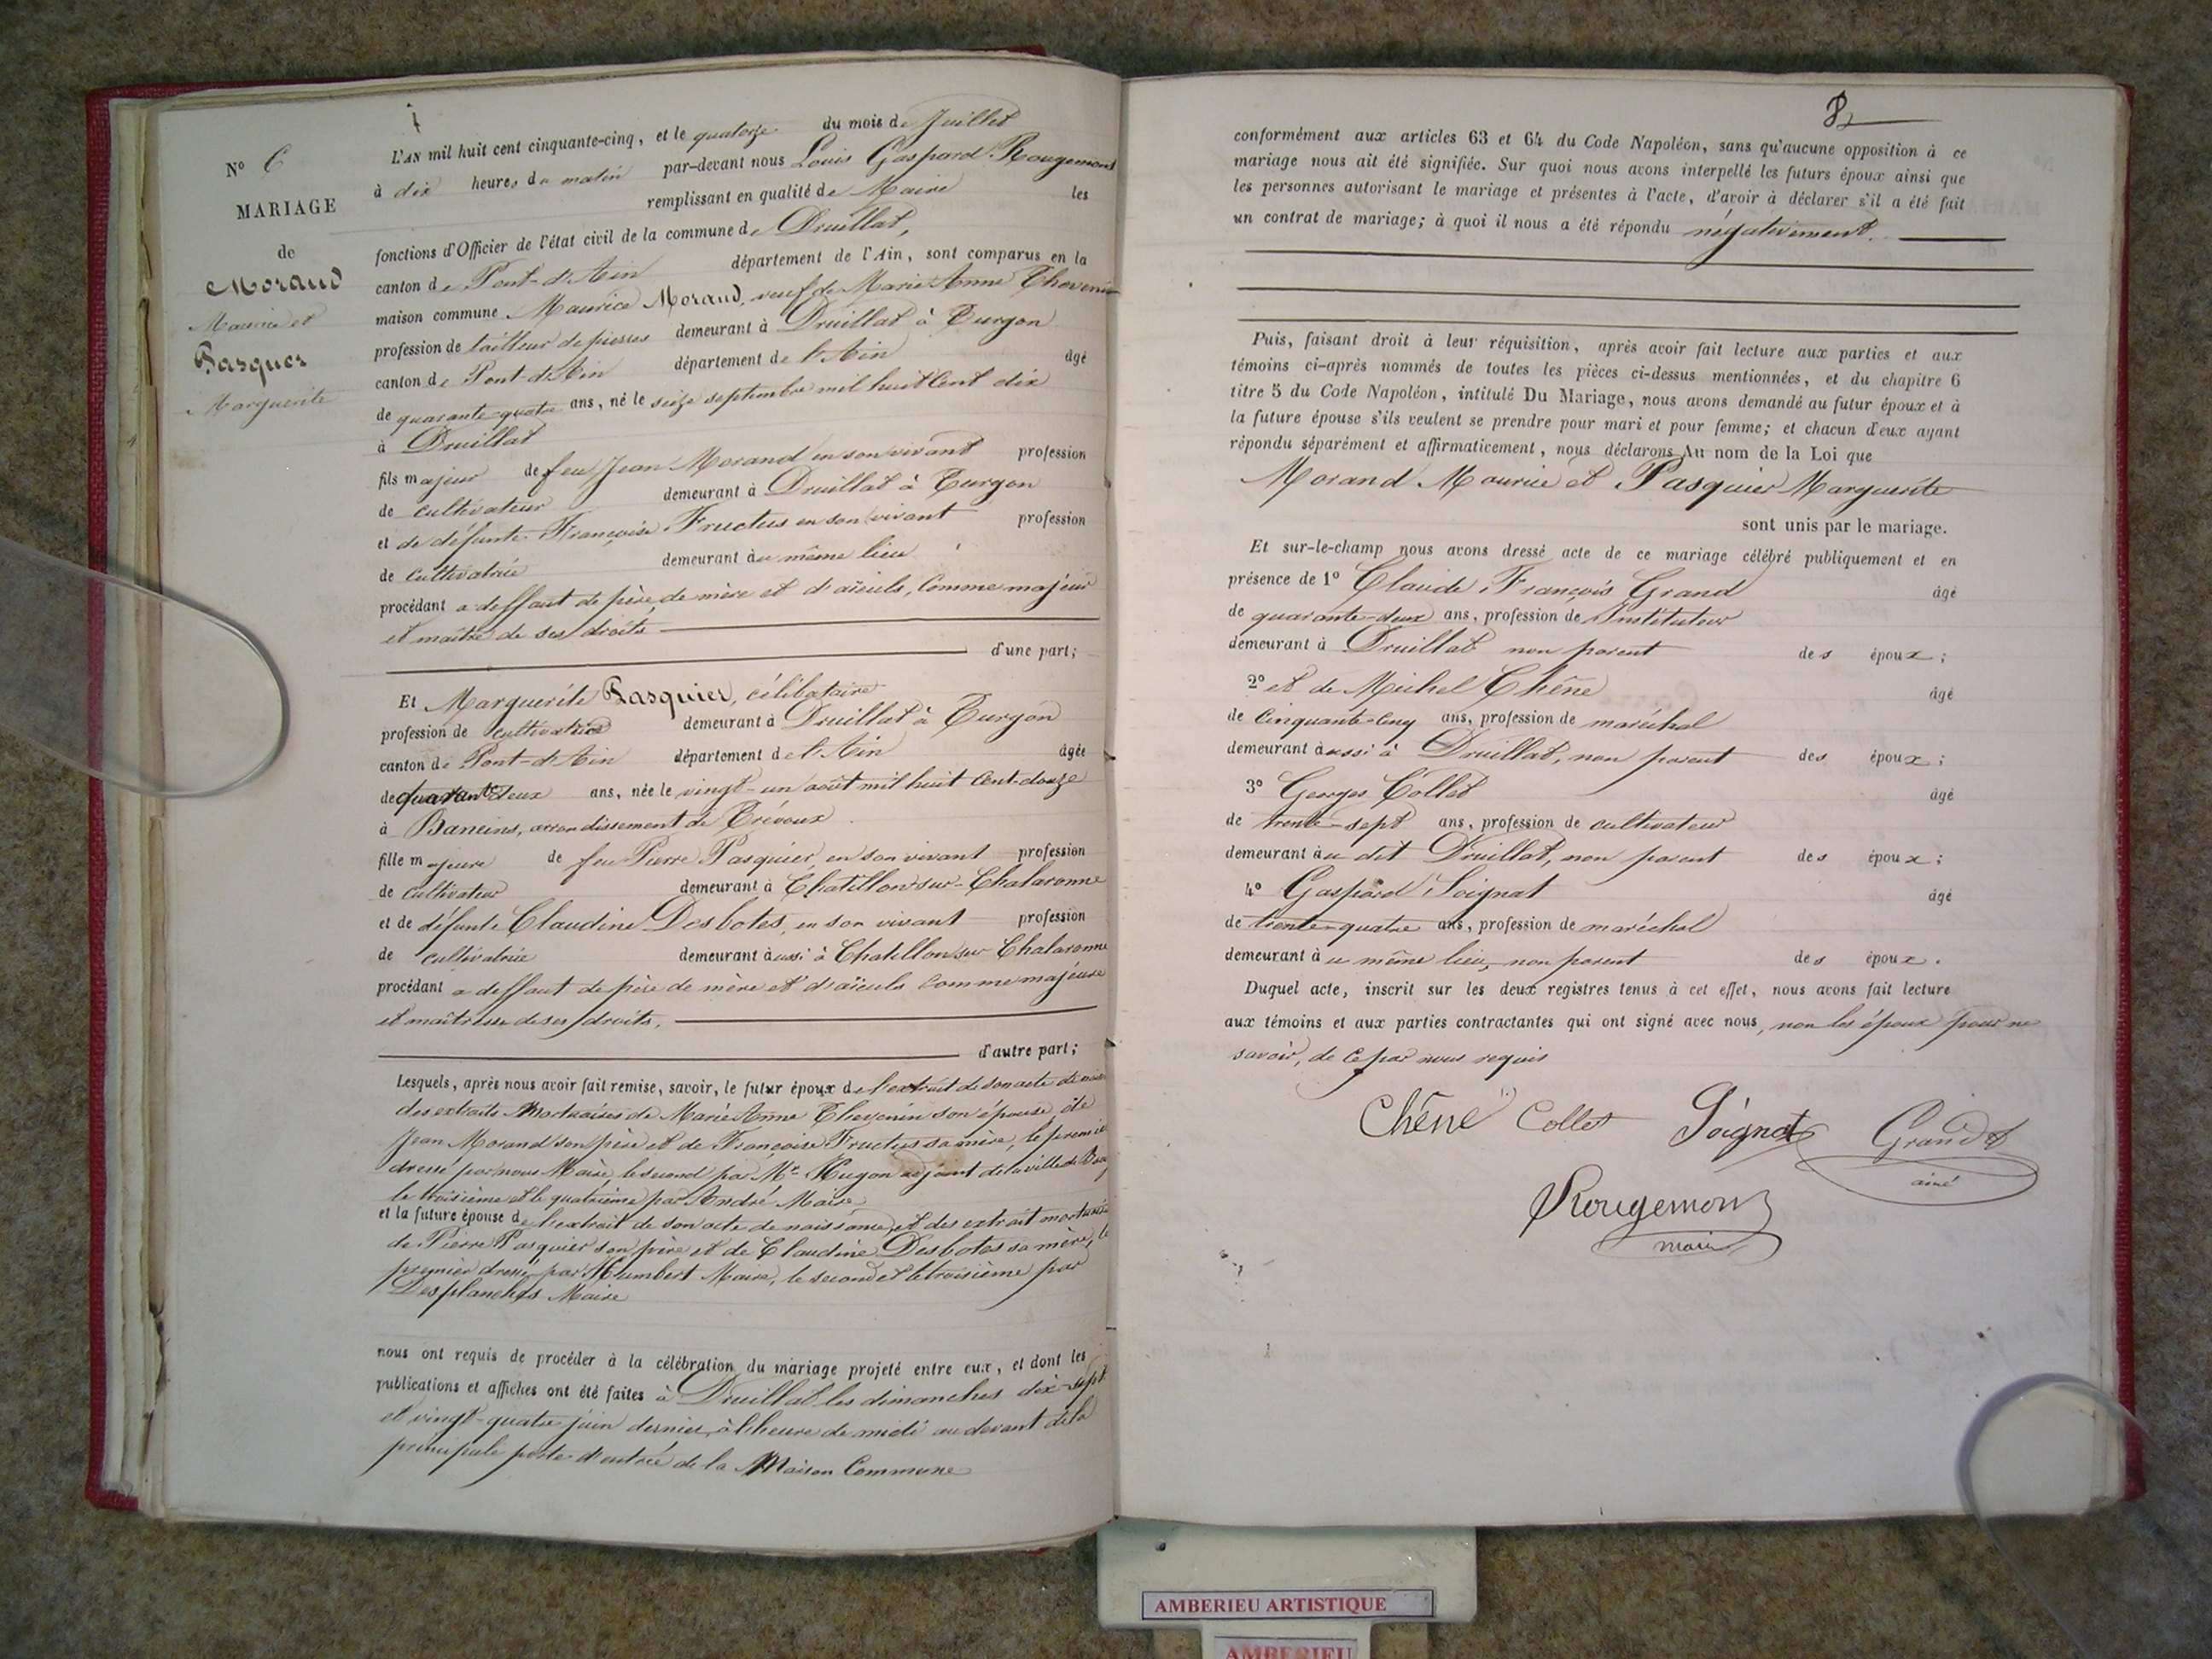 N° 6
MARIAGE
de
Morand
Maurice et
Pasquier
Marguerite
L'AN mil huit cent cinquante-cinq, et le quatorze du mois de Juillet
à dix heures du matin par-devant nous Louis Gaspard Rougemont
remplissant en qualité de Maire les
fonctions d'Officier de l'état civil de la commune de Druillat,
canton de Pont-d'Ain département de l'Ain, sont comparus en la
maison commune Maurice Morand, veuf de Marie Anne Thevenin
profession de tailleur de pierres demeurant à Druillat à Turgon
canton de Pont-d'Ain département de l'Ain âgé
de quarante-quatre ans, né le seize septembre mil huit Cent dix
à Druillat
fils majeur de feu Jean Morand en son vivant profession
de cultivateur demeurant à Druillat à Turgon
et de défunte Françoise Fructus en son vivant profession
de cultivatrice demeurant au même lieu
procédant a deffaut de père, de mère et d'aïeuls, Comme majeur
et maître de ses droits
d'une part;
Et Marguerite Pasquier, célibataire
profession de cultivatrice demeurant à Druillat à Turgon
canton de Pont-d'Ain département de l'Ain âgée
de quarante deux ans, née le vingt-un août mil huit Cent-douze
à Baneins, arrondissement de Trévoux
fille majeure de feu Pierre Pasquier, en son vivant profession
de cultivateur demeurant à Chatillon-sur-Chalaronne
et de défunte Claudine Desbotes, en son vivant profession
de cultivatrice demeurant aussi à Chatillon sur Chalaronne
procédant a deffaut de père de mère et d'aïeuls Comme majeure
et maîtresse de ses droits,
d'autre part;
Lesquels, après nous avoir fait remise, savoir, le futur époux de l'extrait de son acte de
des extraits Mortuaires de Marie Anne Thevenin son épouse, de
Jean Morand son père et de Françoise Fructus sa mère, le premier
dressé par nous Maire, le second par Mr Hugon adjoint de la ville de
le troisième et le quatrième par André Maire
et la future épouse de l'extrait de son acte de naissance, et des extrait mortuaires
de Pierre Pasquier son père et de Claudine Desbotes sa mère, le
premier dressé par Humbert Maire, le second et le troisième par
Desplanches Maire
nous ont requis de procéder à la célébration du mariage projeté entre eux, et dont les
publications et affiches ont été faites à Druillat les dimanches dix-sept
et vingt-quatre juin dernier, à l'heure de midi au devant de la
principale porte d'entrée de la Maison Commune
8
conformément aux articles 63 et 64 du Code Napoléon, sans qu'aucune opposition à ce
mariage nous ait été signifiée. Sur quoi nous avons interpellé les futurs époux ainsi que
les personnes autorisant le mariage et présentes à l'acte, d'avoir à déclarer s'il a été fait
un contrat de mariage; à quoi il nous a été répondu négativement.
Puis, faisant droit à leur réquisition, après avoir fait lecture aux parties et aux
témoins ci-après nommés de toutes les pièces ci-dessus mentionnées, et du chapitre 6
titre 5 du Code Napoléon, intitulé Du Mariage, nous avons demandé au futur époux et à
la future épouse s'ils veulent se prendre pour mari et pour femme; et chacun d'eux ayant
répondu séparément et affirmativement, nous déclarons Au nom de la Loi que
Morand Maurice et Pasquier Marguerite
sont unis par le mariage.
Et sur-le-champ nous avons dressé acte de ce mariage célébré publiquement et en
présence de 1° Claude François Grand âgé
de quarante-deux ans, profession de Instituteur
demeurant à Druillat non parent des époux;
2° et de Michel Chêne âgé
de Cinquante-Cinq ans, profession de maréchal
demeurant aussi à Druillat, non parent des époux;
3° Georges Collet âgé
de trente-sept ans, profession de cultivateur
demeurant au dit Druillat, non parent des époux;
4° Gaspard Soignat âgé
de trente-quatre ans, profession de maréchal
demeurant au même lieu, non parent des époux.
Duquel acte, inscrit sur les deux registres tenus à cet effet, nous avons fait lecture
aux témoins et aux parties contractantes qui ont signé avec nous, non les époux pour ne
savoir, de ce par nous requis
Chêne Collet Soignat Grand
ainé
Rougemont
maire
AMBERIEU ARTISTIQUE
AMBERIEU